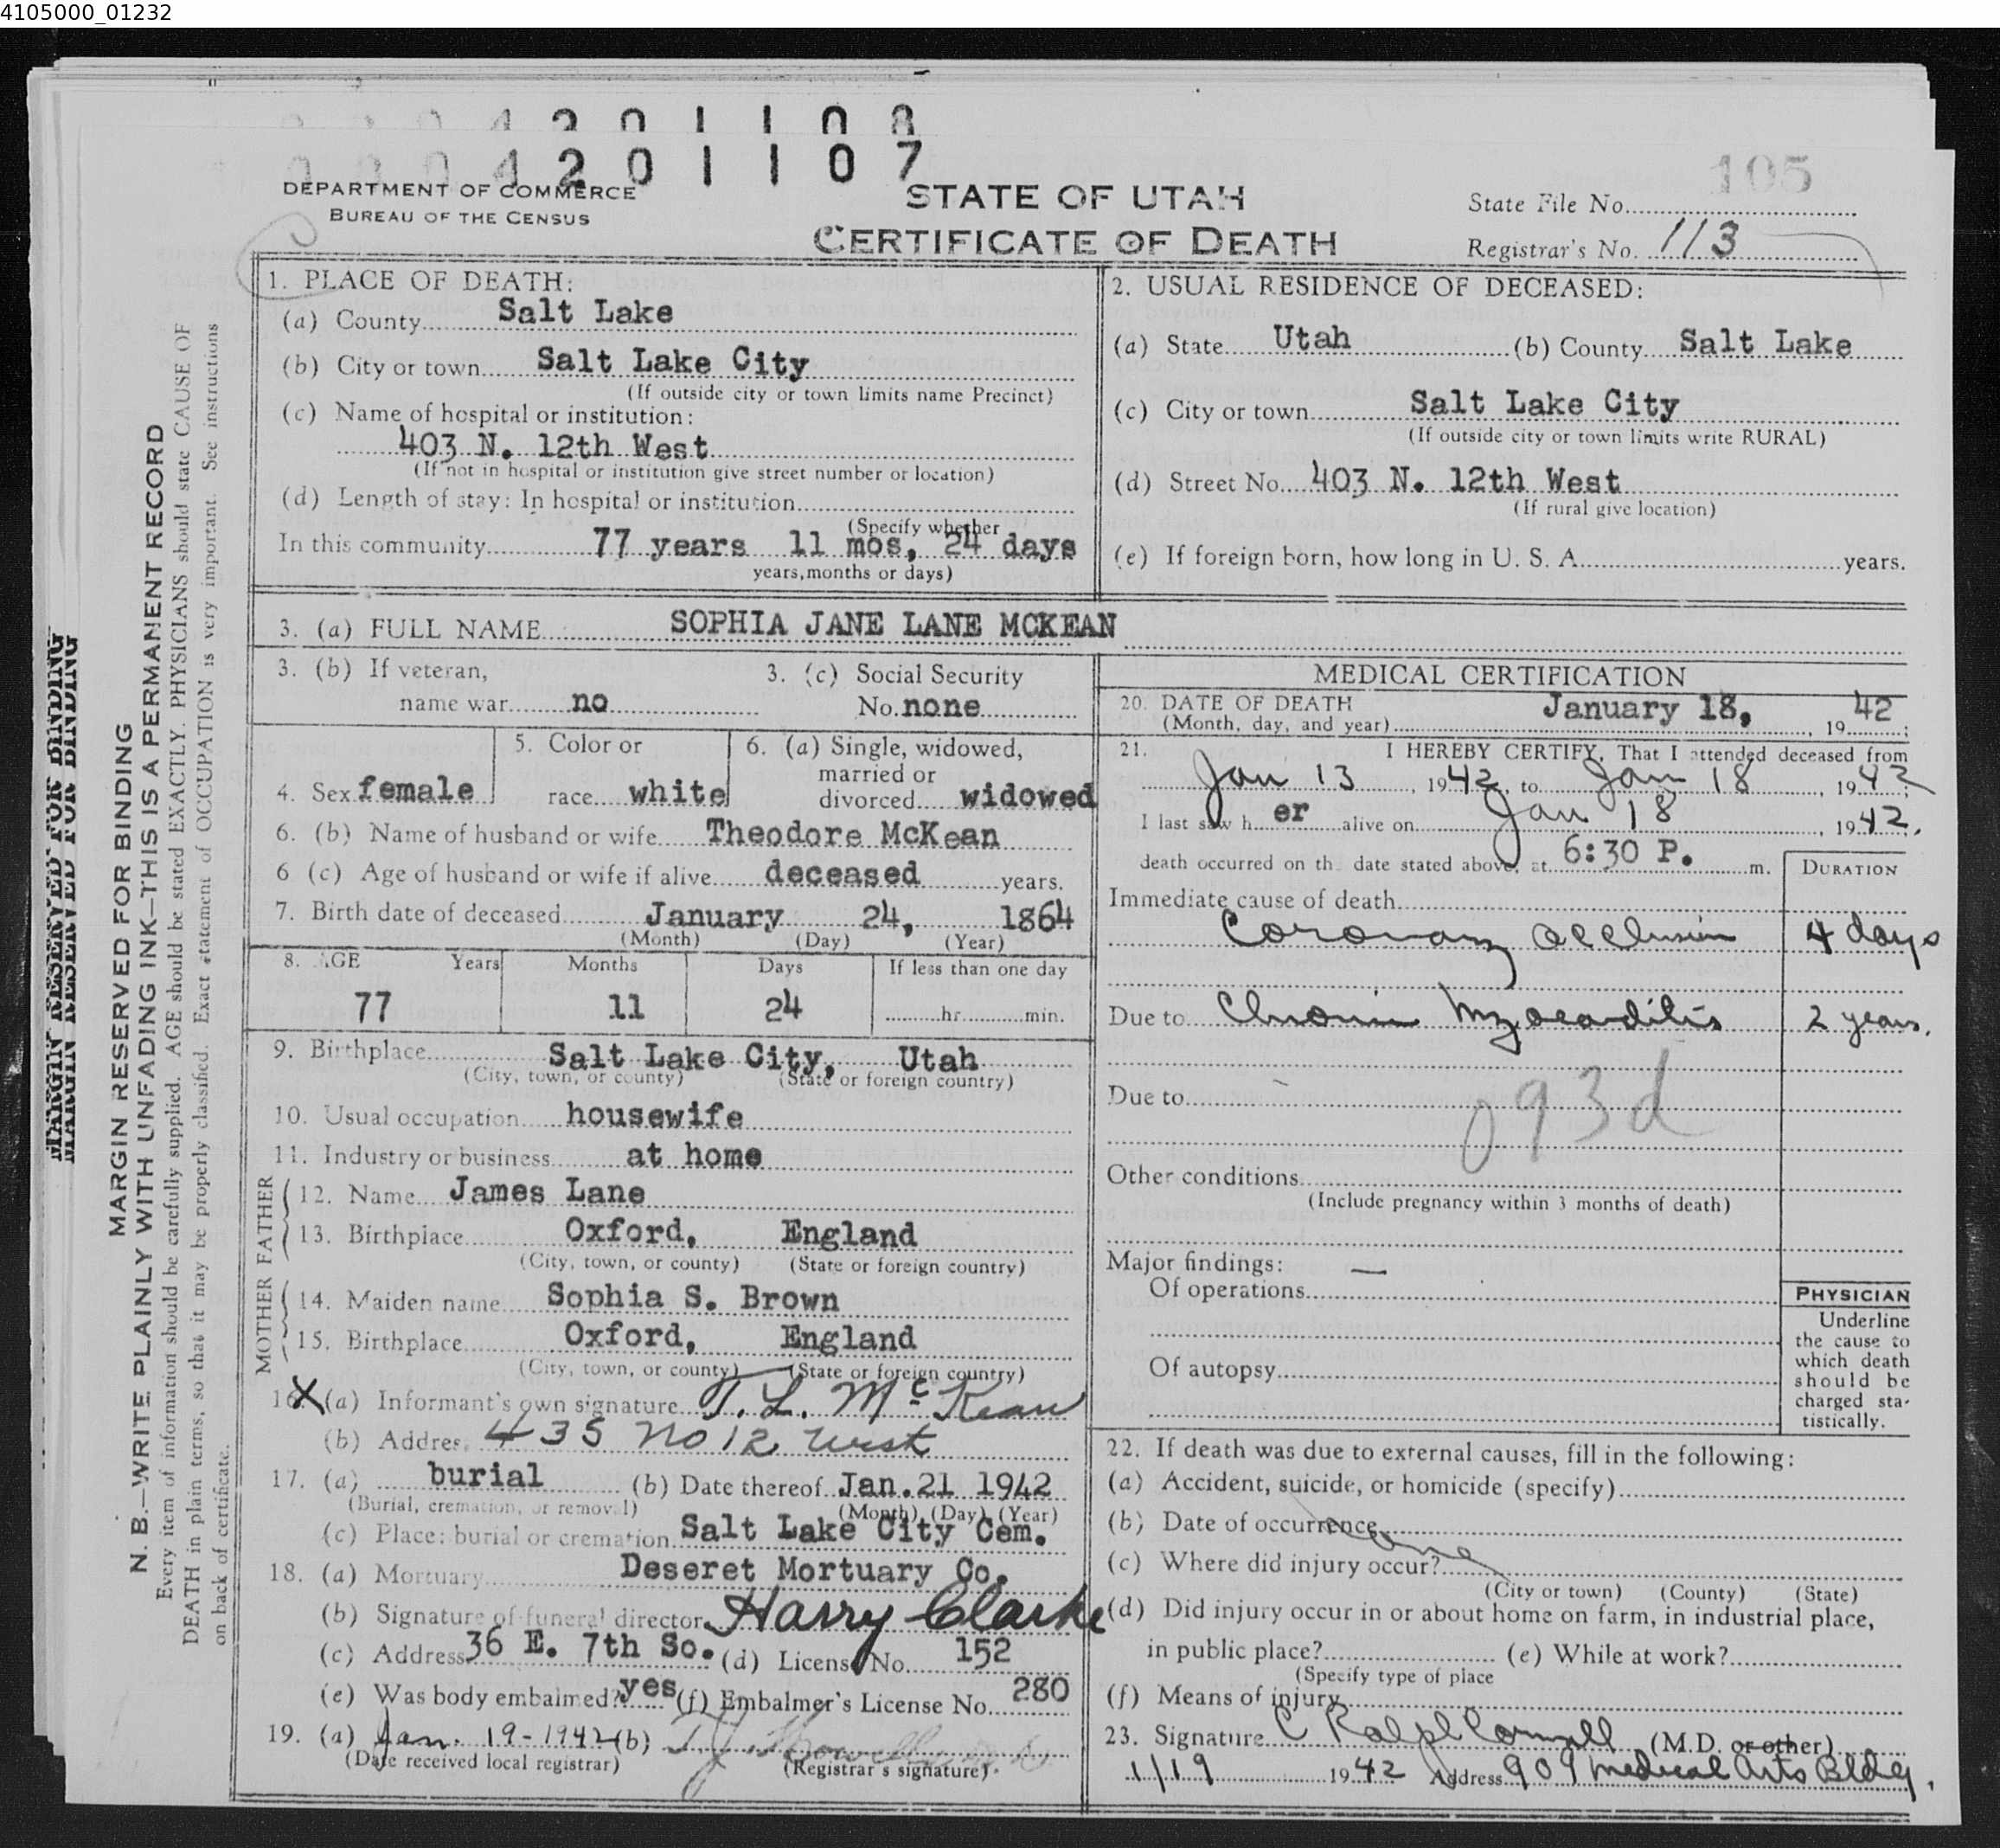 4105000_01232
4201108
4201107
DEPARTMENT OF COMMERCE
BUREAU OF THE CENSUS
STATE OF UTAH
CERTIFICATE OF DEATH
105
State File No.
Registrar's No. 113
MARGIN RESERVED FOR BINDING
MARGIN RESERVED FOR BINDING
MARGIN RESERVED FOR BINDING
N. B.—WRITE PLAINLY WITH UNFADING INK—THIS IS A PERMANENT RECORD
Every item of information should be carefully supplied. AGE should be stated EXACTLY. PHYSICIANS should state CAUSE OF
DEATH in plain terms, so that it may be properly classified. Exact statement of OCCUPATION is very important. See instructions
on back of certificate.
1. PLACE OF DEATH:
(a) County Salt Lake
(b) City or town Salt Lake City
(If outside city or town limits name Precinct)
(c) Name of hospital or institution:
403 N. 12th West
(If not in hospital or institution give street number or location)
(d) Length of stay: In hospital or institution
(Specify whether
In this community 77 years 11 mos, 24 days
years, months or days)
2. USUAL RESIDENCE OF DECEASED:
(a) State Utah (b) County Salt Lake
(c) City or town Salt Lake City
(If outside city or town limits write RURAL)
(d) Street No. 403 N. 12th West
(If rural give location)
(e) If foreign born, how long in U. S. A. years.
3. (a) FULL NAME SOPHIA JANE LANE MCKEAN
3. (b) If veteran,
name war no
3. (c) Social Security
No. none
4. Sex female
5. Color or
race white
6. (a) Single, widowed,
married or
divorced widowed
6. (b) Name of husband or wife Theodore McKean
6 (c) Age of husband or wife if alive deceased years.
7. Birth date of deceased January 24, 1864
(Month) (Day) (Year)
8. AGE Years Months Days If less than one day
77 11 24 hr. min.
9. Birthplace Salt Lake City, Utah
(City, town, or county) (State or foreign country)
10. Usual occupation housewife
11. Industry or business at home
FATHER
12. Name James Lane
13. Birthplace Oxford, England
(City, town, or county) (State or foreign country)
MOTHER
14. Maiden name Sophia S. Brown
15. Birthplace Oxford, England
(City, town, or county) (State or foreign country)
16 X (a) Informant's own signature T. L. McKean
(b) Address 435 No 12 West
17. (a) burial (b) Date thereof Jan. 21 1942
(Burial, cremation, or removal) (Month) (Day) (Year)
(c) Place: burial or cremation Salt Lake City Cem.
18. (a) Mortuary Deseret Mortuary Co.
(b) Signature of funeral director Harry Clarke
(c) Address 36 E. 7th So. (d) License No. 152
(e) Was body embalmed? yes (f) Embalmer's License No. 280
19. (a) Jan. 19-1942 (b)
(Date received local registrar) (Registrar's signature)
MEDICAL CERTIFICATION
20. DATE OF DEATH
(Month, day, and year) January 18, 1942
21. I HEREBY CERTIFY, That I attended deceased from
Jan 13, 1942, to Jan 18, 1942;
I last saw her alive on Jan 18, 1942,
death occurred on the date stated above, at 6:30 P. m.
DURATION
Immediate cause of death
Coronary occlusion 4 days
Due to Chronic Myocarditis 2 years.
Due to
093d
Other conditions
(Include pregnancy within 3 months of death)
Major findings: —
Of operations
Of autopsy
PHYSICIAN
Underline
the cause to
which death
should be
charged sta-
tistically.
22. If death was due to external causes, fill in the following:
(a) Accident, suicide, or homicide (specify)
(b) Date of occurrence
(c) Where did injury occur?
(City or town) (County) (State)
(d) Did injury occur in or about home on farm, in industrial place,
in public place? (e) While at work?
(Specify type of place
(f) Means of injury
23. Signature C Ralph Cornwall (M.D. or other)
1/19 1942 Address 909 Medical Arts Bldg.